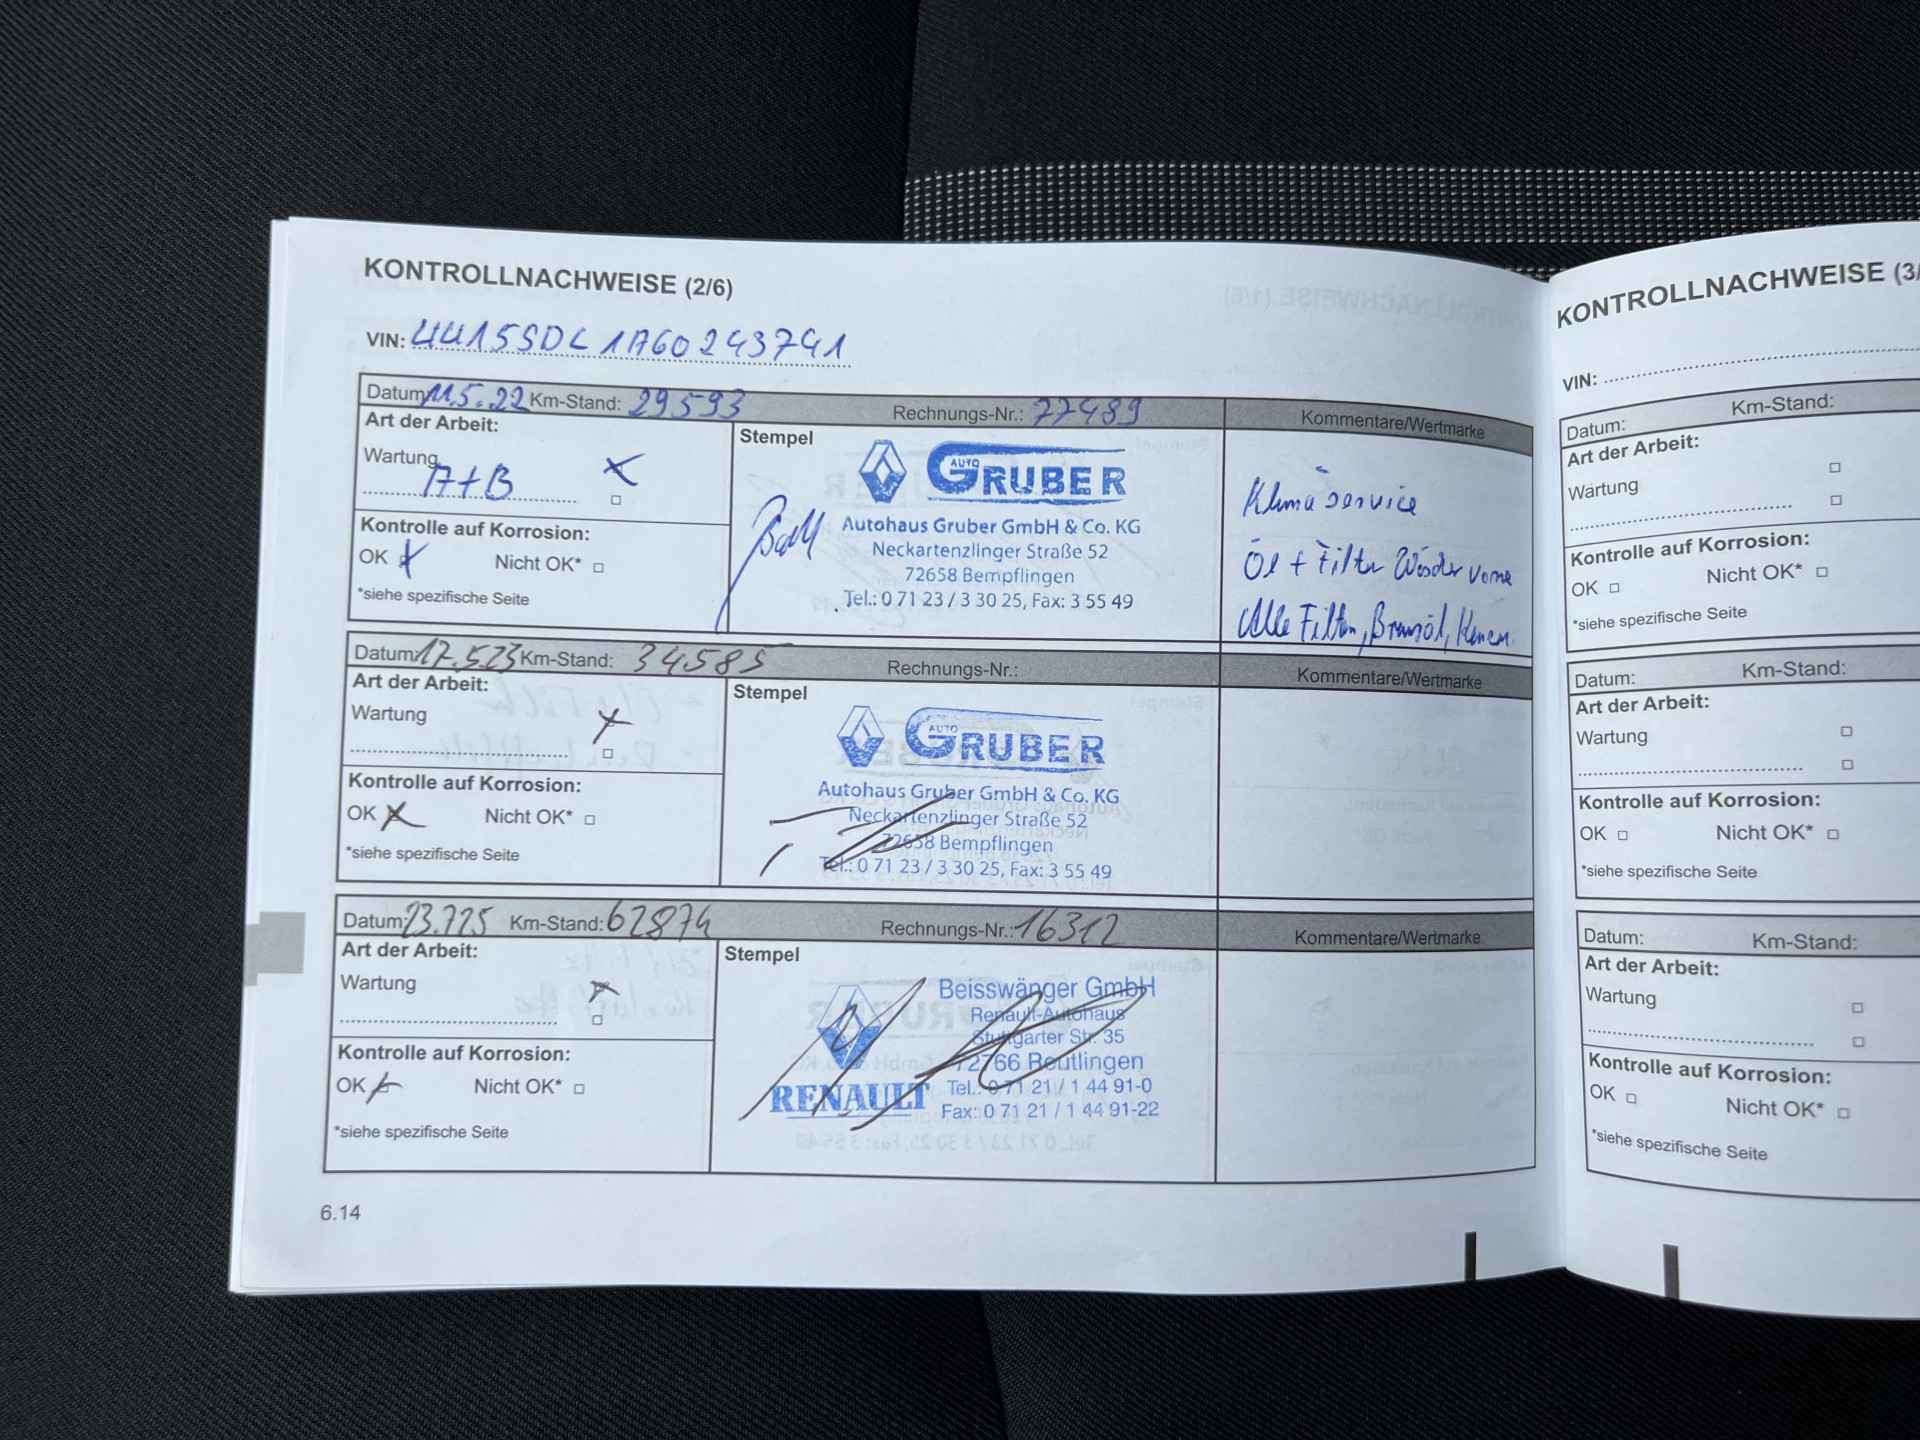 KONTROLLNACHWEISE (2/6)
VIN: UU15SDL1A60243741
Datum: 11.5.22 Km-Stand: 29593 Rechnungs-Nr.: 77489 Kommentare/Wertmarke
Art der Arbeit:
Wartung
A+B
Kontrolle auf Korrosion:
OK Nicht OK*
*siehe spezifische Seite
Stempel
AUTO GRUBER
Autohaus Gruber GmbH & Co. KG
Neckartenzlinger Straße 52
72658 Bempflingen
Tel.: 0 71 23 / 3 30 25, Fax: 3 55 49
Klimaservice
Öl + Filter vorne
Alle Filter,
Datum: 17.5.23 Km-Stand: 34585 Rechnungs-Nr.: Kommentare/Wertmarke
Art der Arbeit:
Wartung
Kontrolle auf Korrosion:
OK Nicht OK*
*siehe spezifische Seite
Stempel
AUTO GRUBER
Autohaus Gruber GmbH & Co. KG
Neckartenzlinger Straße 52
72658 Bempflingen
Tel.: 0 71 23 / 3 30 25, Fax: 3 55 49
Datum: 23.7.25 Km-Stand: 62874 Rechnungs-Nr.: 16312 Kommentare/Wertmarke
Art der Arbeit:
Wartung
Kontrolle auf Korrosion:
OK Nicht OK*
*siehe spezifische Seite
Stempel
RENAULT
Beisswänger GmbH
Renault-Autohaus
Stuttgarter Str. 35
72766 Reutlingen
Tel.: 0 71 21 / 1 44 91-0
Fax: 0 71 21 / 1 44 91-22
6.14
KONTROLLNACHWEISE (3/
VIN:
Datum: Km-Stand:
Art der Arbeit:
Wartung
Kontrolle auf Korrosion:
OK Nicht OK*
*siehe spezifische Seite
Datum: Km-Stand:
Art der Arbeit:
Wartung
Kontrolle auf Korrosion:
OK Nicht OK*
*siehe spezifische Seite
Datum: Km-Stand:
Art der Arbeit:
Wartung
Kontrolle auf Korrosion:
OK Nicht OK*
*siehe spezifische Seite